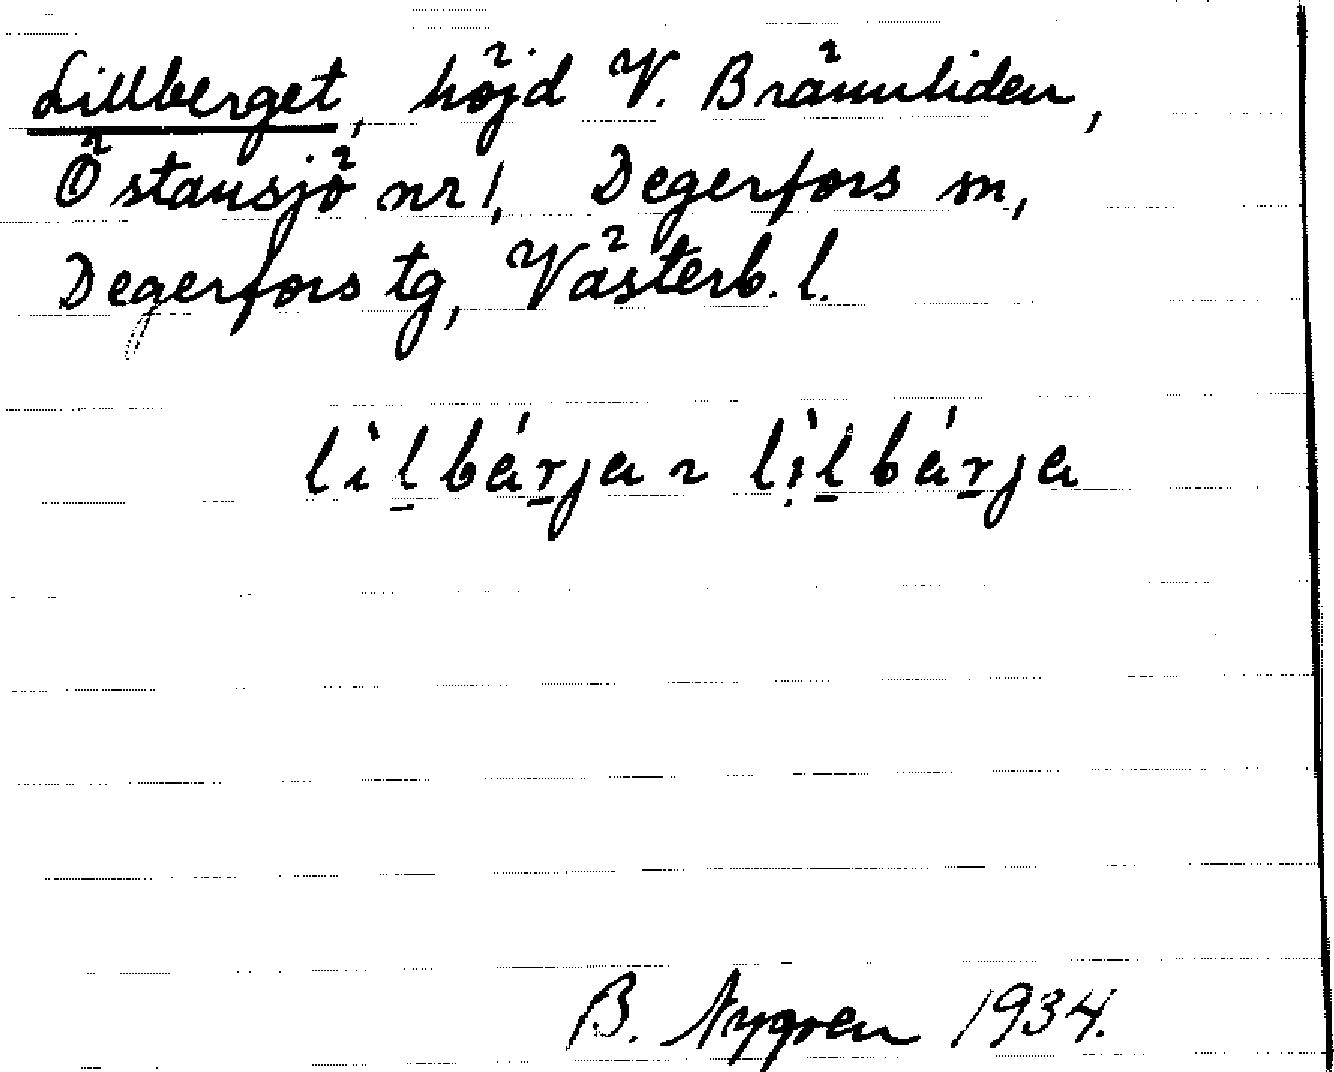 Lillberget, höjd V. Brännliden,
Östansjö nr 1, Degerfors sn,
Degerfors tg, Västerb. l.
lìl̠bár̠ja ~ lı̣̀l̠bár̠ja
B. Nygren 1934.